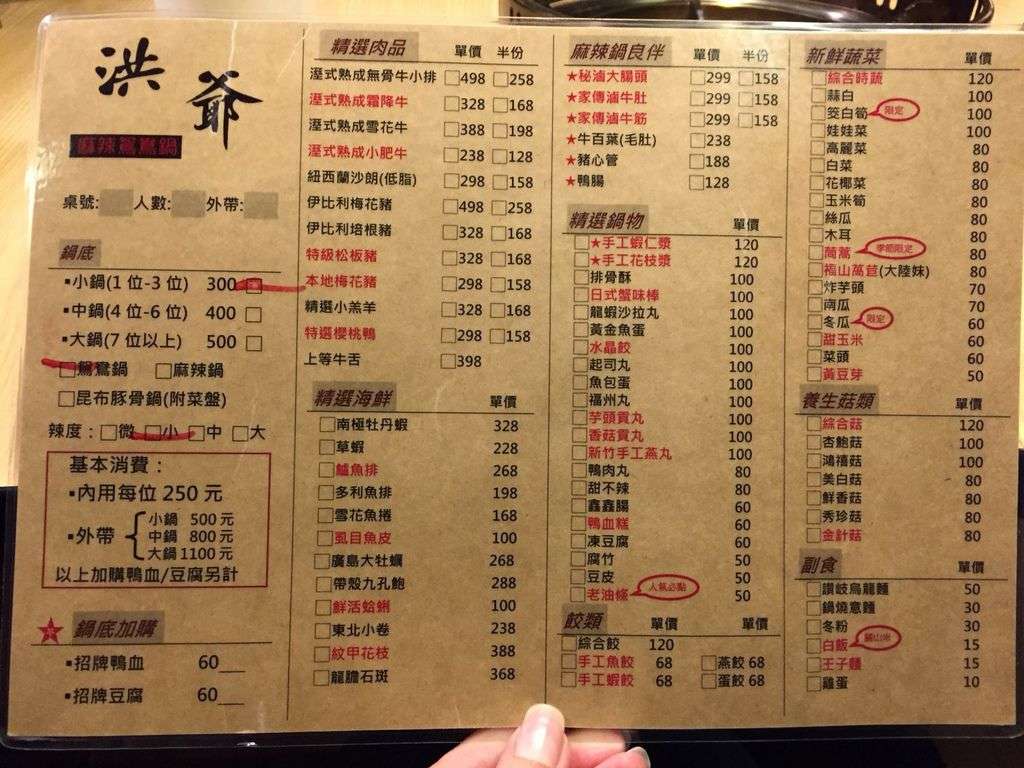 洪爺
麻辣鴛鴦鍋
桌號: 人數: 外帶:
鍋底
▪小鍋(1位-3位) 300 □
▪中鍋(4位-6位) 400 □
▪大鍋(7位以上) 500 □
□鴛鴦鍋 □麻辣鍋
□昆布豚骨鍋(附菜盤)
辣度：□微 □小 □中 □大
基本消費：
▪內用每位 250 元
▪外帶
小鍋 500元
中鍋 800元
大鍋 1100元
以上加購鴨血/豆腐另計
鍋底加購
▪招牌鴨血 60__
▪招牌豆腐 60__
精選肉品 單價 半份
溼式熟成無骨牛小排 □498 □258
溼式熟成霜降牛 □328 □168
溼式熟成雪花牛 □388 □198
溼式熟成小肥牛 □238 □128
紐西蘭沙朗(低脂) □298 □158
伊比利梅花豬 □498 □258
伊比利培根豬 □328 □168
特級松板豬 □328 □168
本地梅花豬 □298 □158
精選小羔羊 □328 □168
特選櫻桃鴨 □298 □158
上等牛舌 □398
精選海鮮 單價
□南極牡丹蝦 328
□草蝦 228
□鱸魚排 268
□多利魚排 198
□雪花魚捲 168
□虱目魚皮 100
□廣島大牡蠣 268
□帶殼九孔鮑 288
□鮮活蛤蜊 100
□東北小卷 238
□紋甲花枝 388
□龍膽石斑 368
麻辣鍋良伴 單價 半份
★秘滷大腸頭 □299 □158
★家傳滷牛肚 □299 □158
★家傳滷牛筋 □299 □158
★牛百葉(毛肚) □238
★豬心管 □188
★鴨腸 □128
精選鍋物 單價
□★手工蝦仁漿 120
□★手工花枝漿 120
□排骨酥 100
□日式蟹味棒 100
□龍蝦沙拉丸 100
□黃金魚蛋 100
□水晶餃 100
□起司丸 100
□魚包蛋 100
□福州丸 100
□芋頭貢丸 100
□香菇貢丸 100
□新竹手工燕丸 100
□鴨肉丸 80
□甜不辣 80
□鑫鑫腸 60
□鴨血糕 60
□凍豆腐 60
□腐竹 50
□豆皮 50
□老油條 人氣必點 50
餃類 單價 單價
□綜合餃 120
□手工魚餃 68 □燕餃 68
□手工蝦餃 68 □蛋餃 68
新鮮蔬菜 單價
□綜合時蔬 120
□蒜白 100
□筊白筍 限定 100
□娃娃菜 100
□高麗菜 80
□白菜 80
□花椰菜 80
□玉米筍 80
□絲瓜 80
□木耳 80
□茼蒿 季節限定 80
□福山萵苣(大陸妹) 80
□炸芋頭 70
□南瓜 70
□冬瓜 限定 60
□甜玉米 60
□菜頭 60
□黃豆芽 50
養生菇類 單價
□綜合菇 120
□杏鮑菇 100
□鴻禧菇 100
□美白菇 80
□鮮香菇 80
□秀珍菇 80
□金針菇 80
副食 單價
□讚岐烏龍麵 50
□鍋燒意麵 30
□冬粉 30
□白飯 15
□王子麵 15
□雞蛋 10